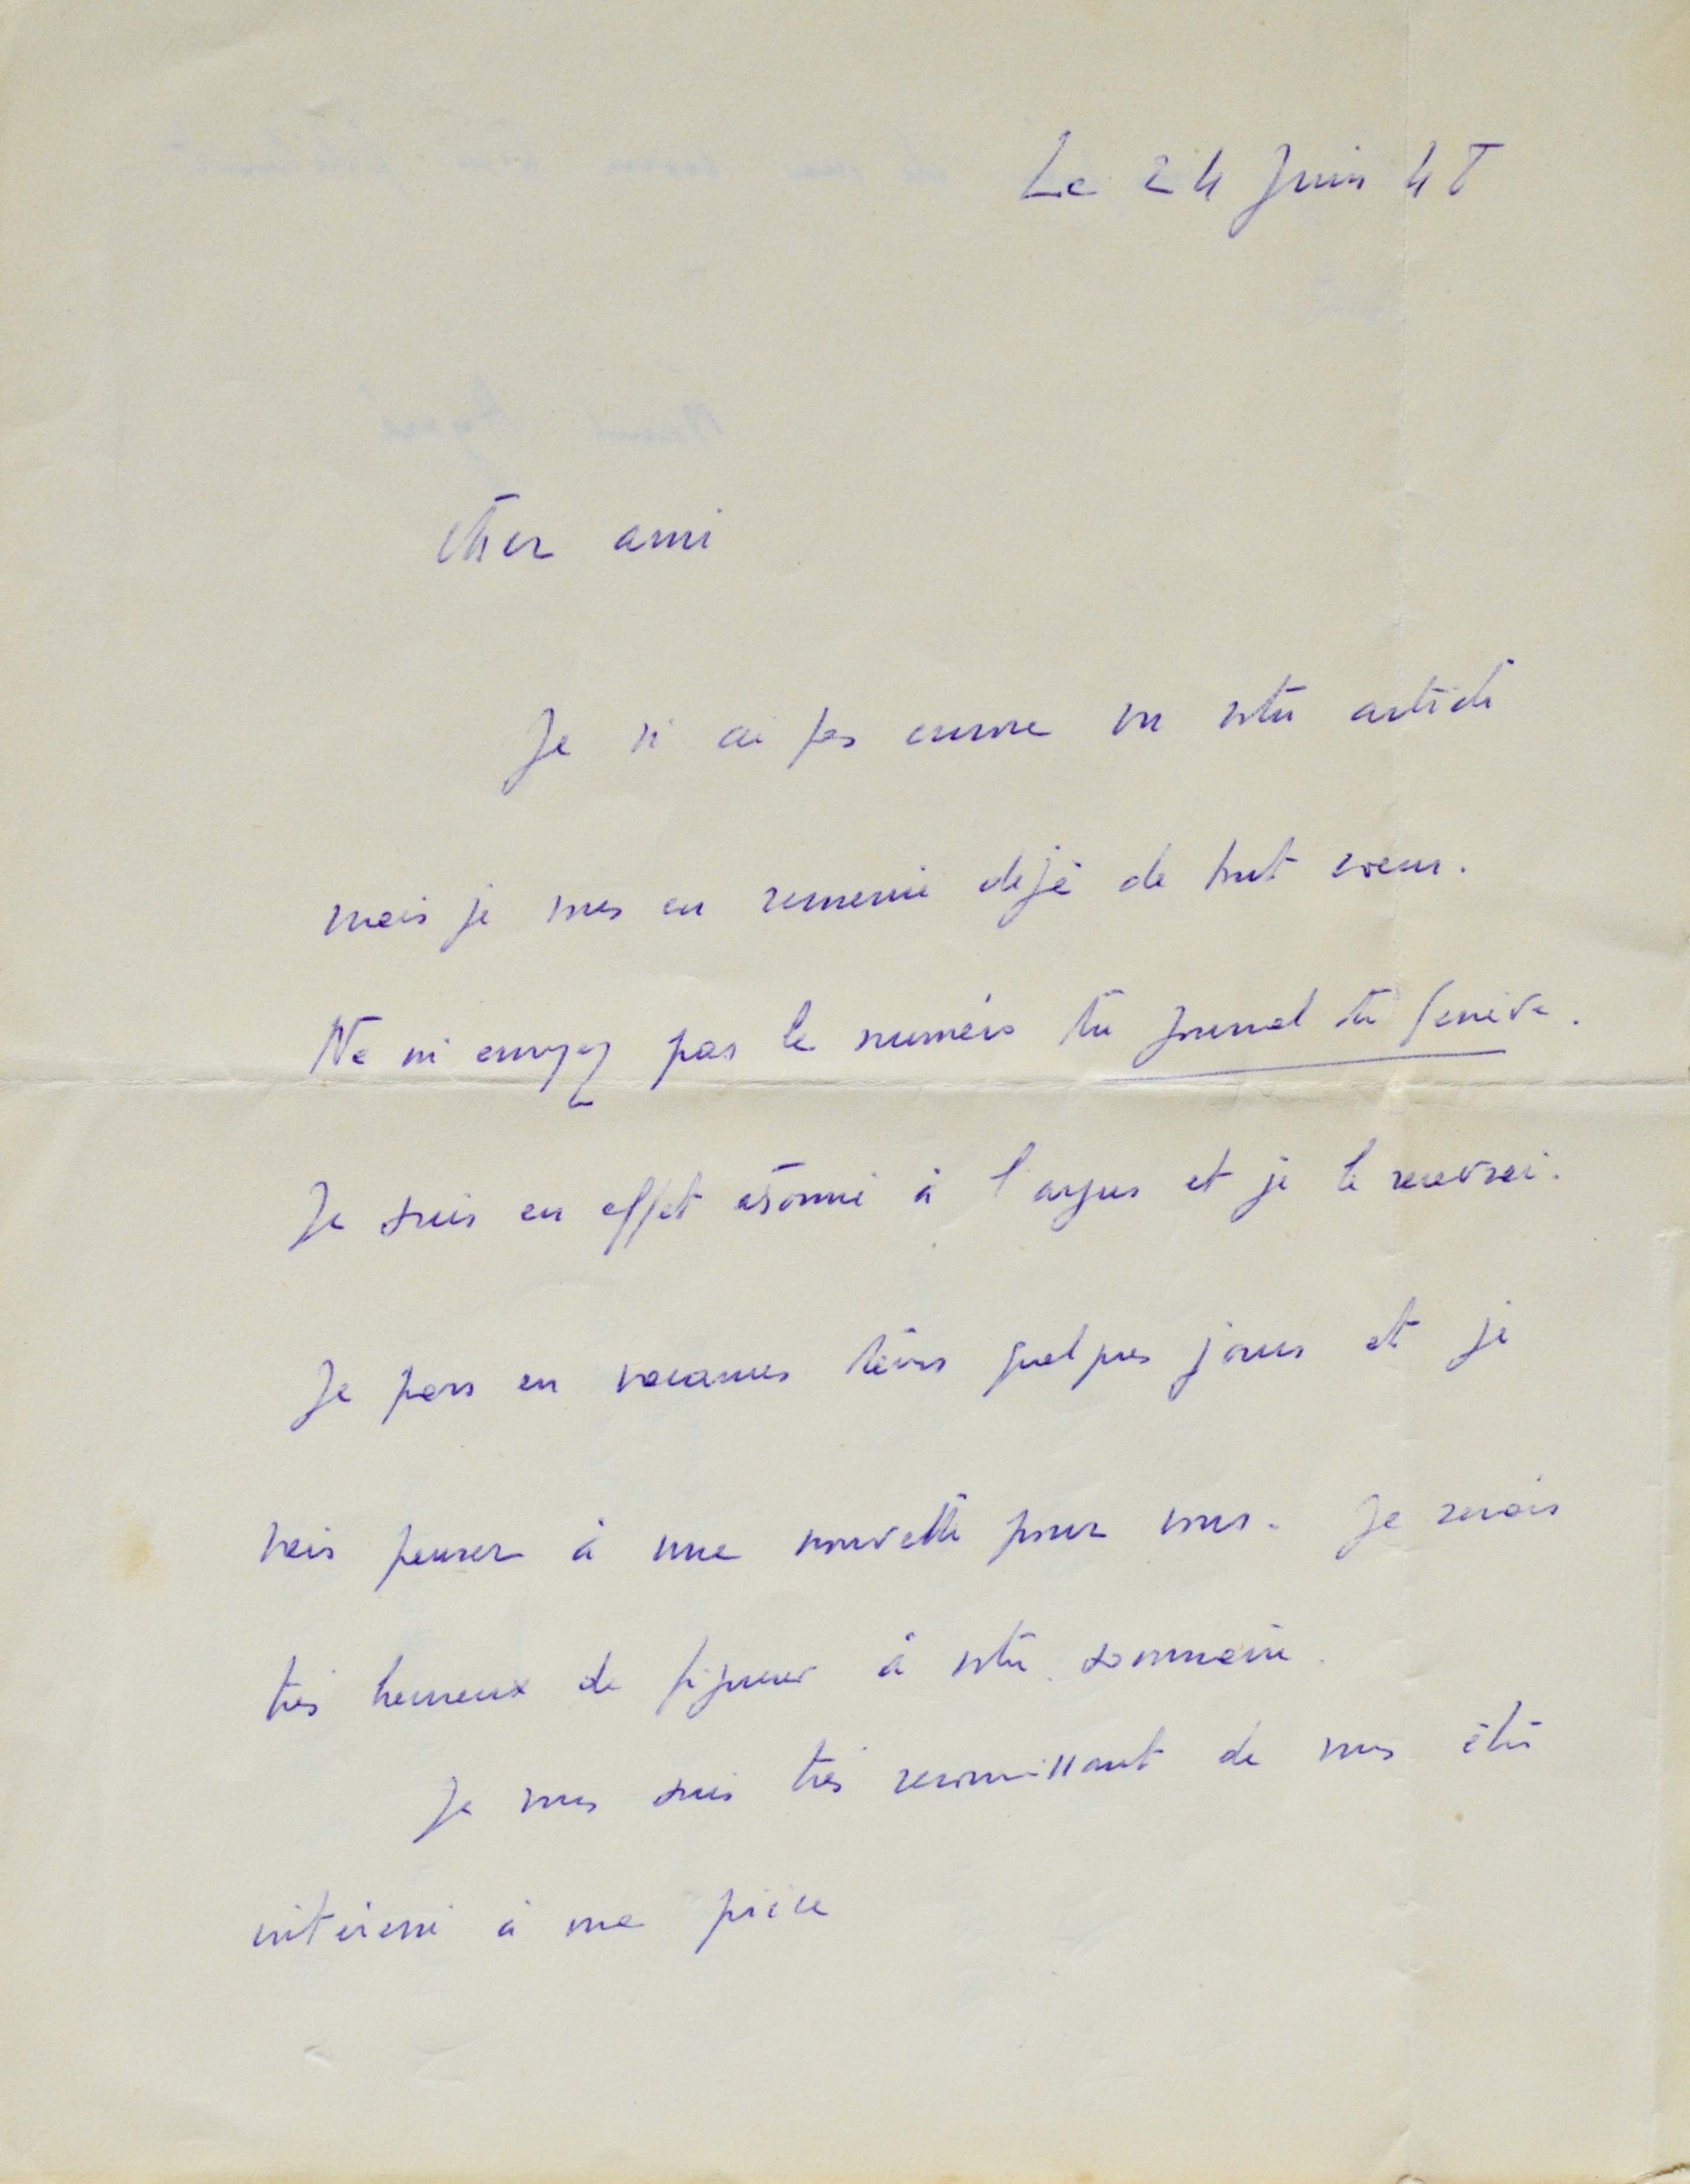 Le 24 Juin 48
Cher ami
Je n'ai pas encore vu votre article
mais je vous en remercie déjà de tout coeur.
Ne m'envoyez pas le numéro du Journal de Genève.
Je suis en effet abonné à l'argus et je le recevrai.
Je pars en vacances dans quelques jours et je
vais penser à une nouvelle pour vous. Je serais
très heureux de figurer à votre sommaire.
Je vous suis très reconnaissant de vous être
intéressé à ma pièce